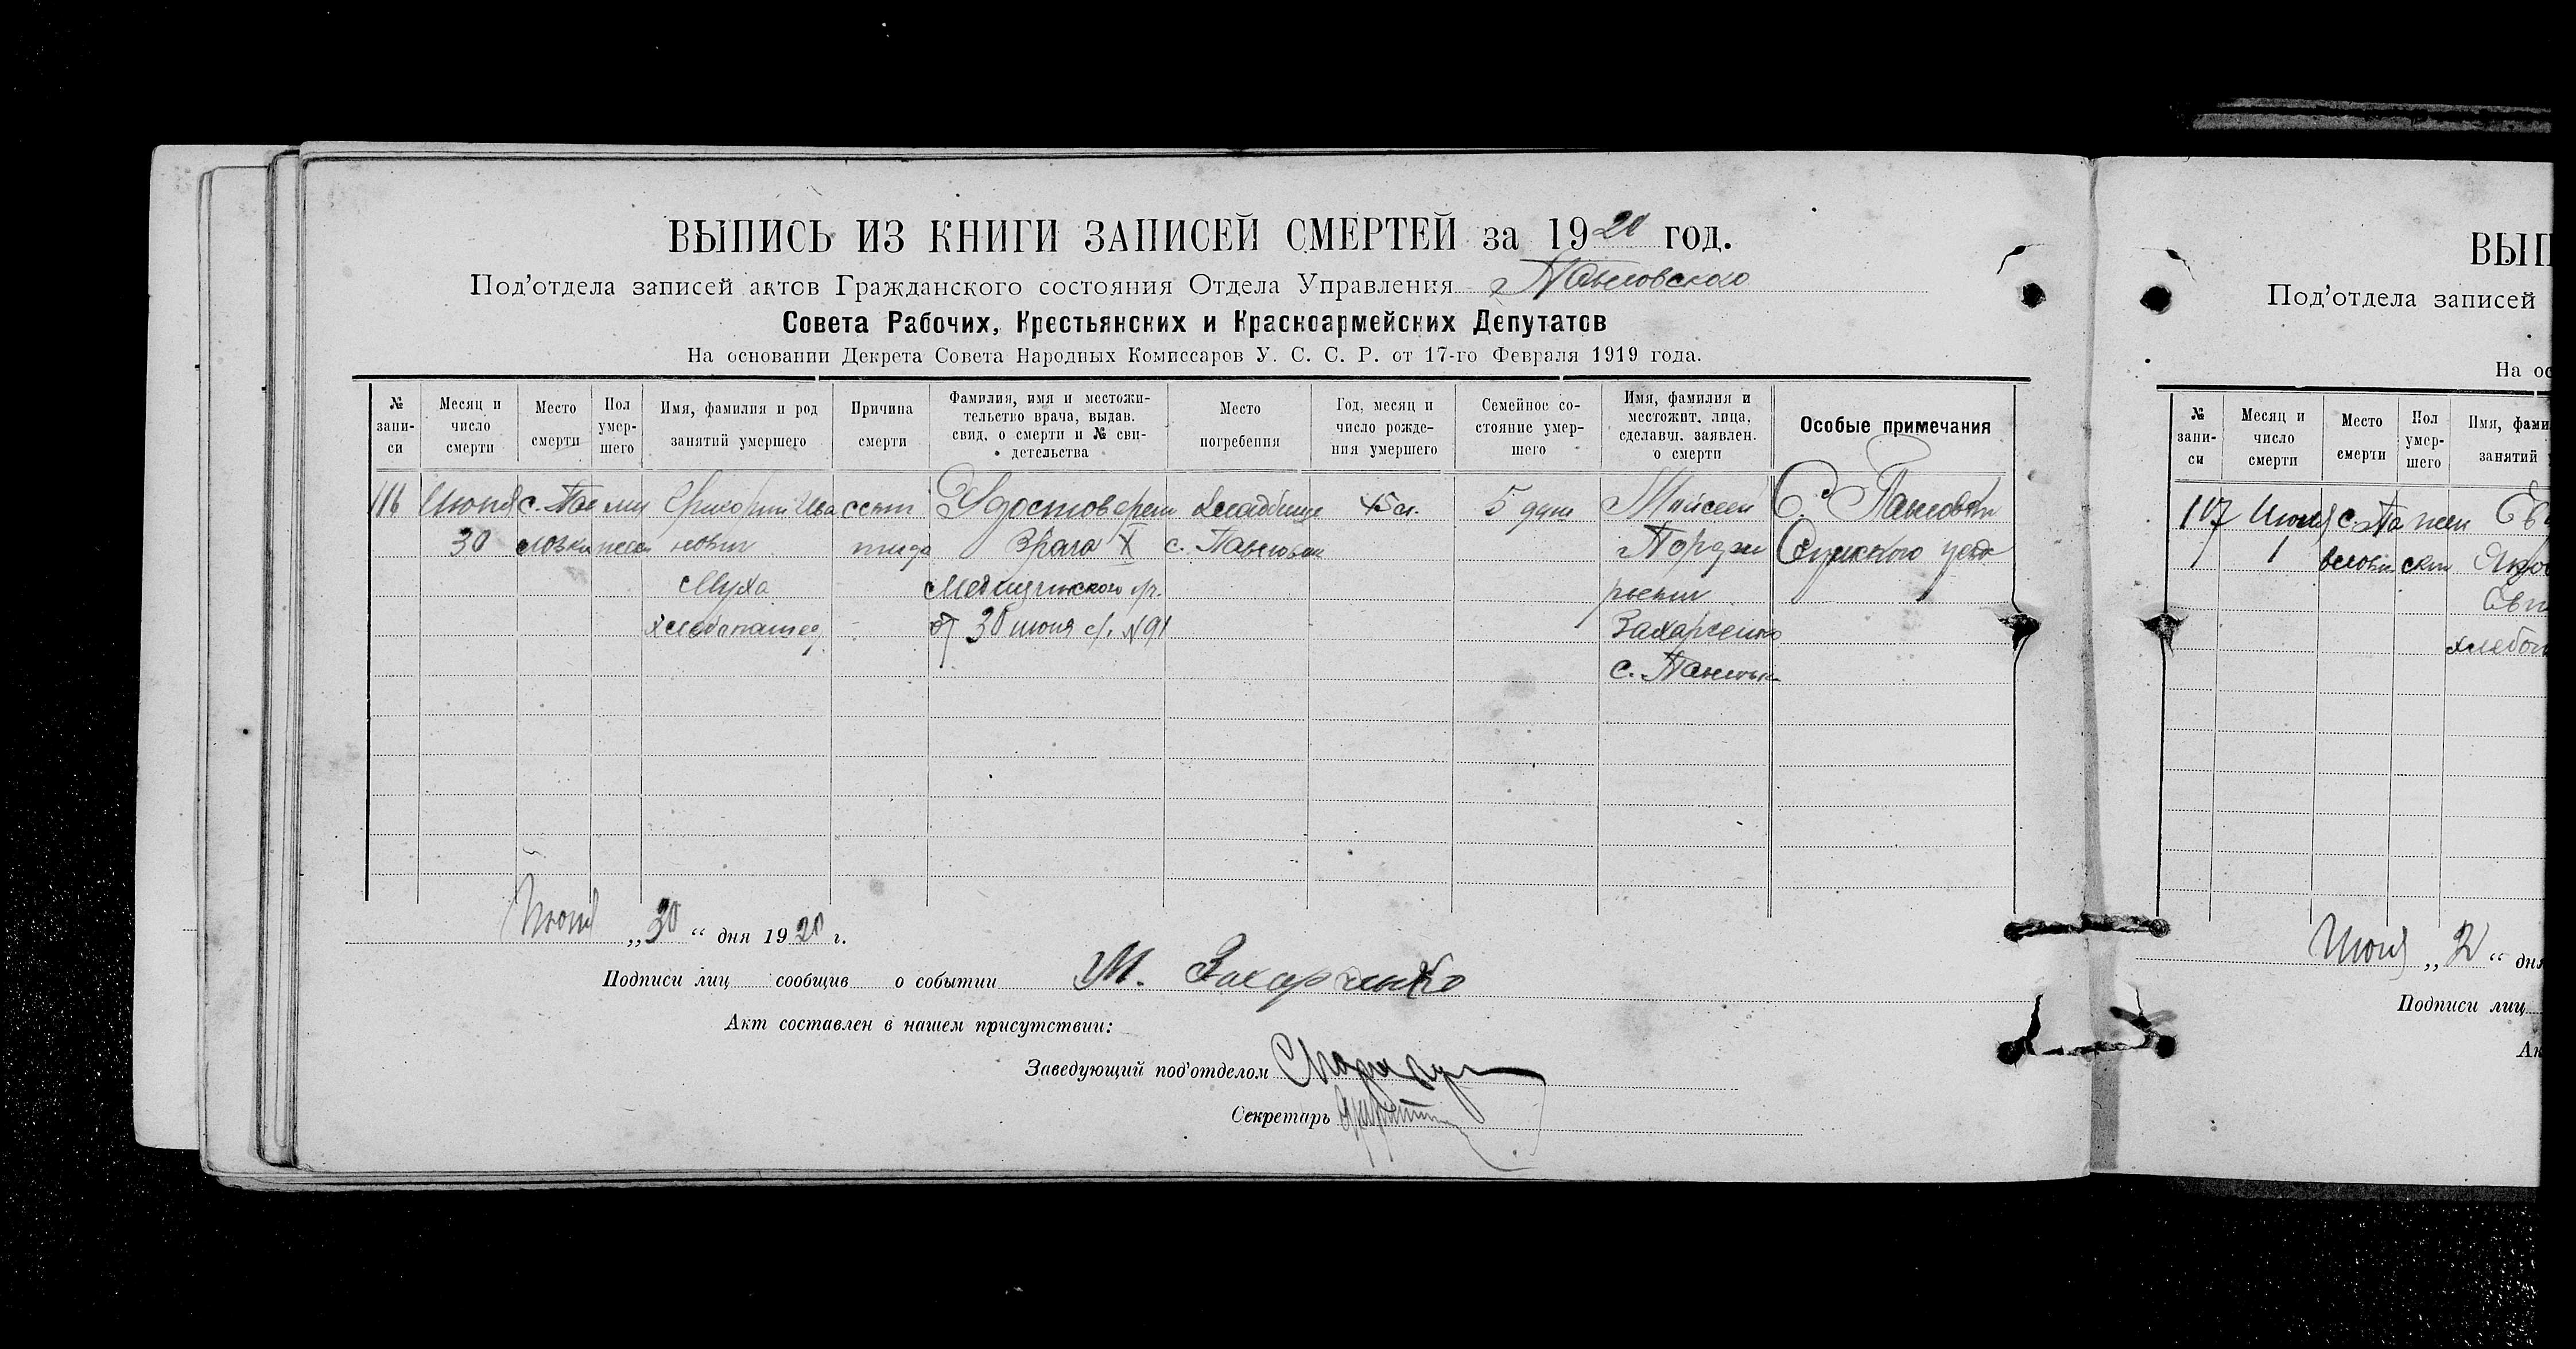 ВЫПИСЬ ИЗ КНИГИ ЗАПИСЕЙ СМЕРТЕЙ за 1920 год.
Под'отдела записей актов Гражданского состояния Отдела Управления Павловского
Совета Рабочих, Крестьянских и Красноармейских Депутатов
На основании Декрета Совета Народных Комиссаров У. С. С. Р. от 17-го Февраля 1919 года.
№ запи-си
Месяц и число смерти
Место смерти
Пол умер-шего
Имя, фамилия и род занятий умершего
Причина смерти
Фамилия, имя и местожи-тельство врача, выдав. свид. о смерти и № сви-детельства
Место погребения
Год, месяц и число рожде-ния умершего
Семейное со-стояние умер-шего
Имя, фамилия и местожит. лица, сделавш. заявлен. о смерти
Особые примечания
116 Июня с. Пав Григорий Ива Удостоверен Кладбище 45 л. 5 душ Моисей С. Павловки
30 ловка нович врача X с. Павловки Сумского уезда
Муха Медицинского
хлебопашец от 30 июня с/г. № 91 Захарченко
с. Павловка
Июня „30“ дня 1920 г.
Подписи лиц сообщив о событии М. Захарченко
Акт составлен в нашем присутствии:
Заведующий под'отделом
Секретарь
ВЫП
Под'отдела записей
На ос
№ запи-си
Месяц и число смерти
Место смерти
Пол умер-шего
Имя, фами
занятий
117 Июля с. Па жен
1 вловки ски
хлебоп
Июля „2“ дня
Подписи лиц
Ак